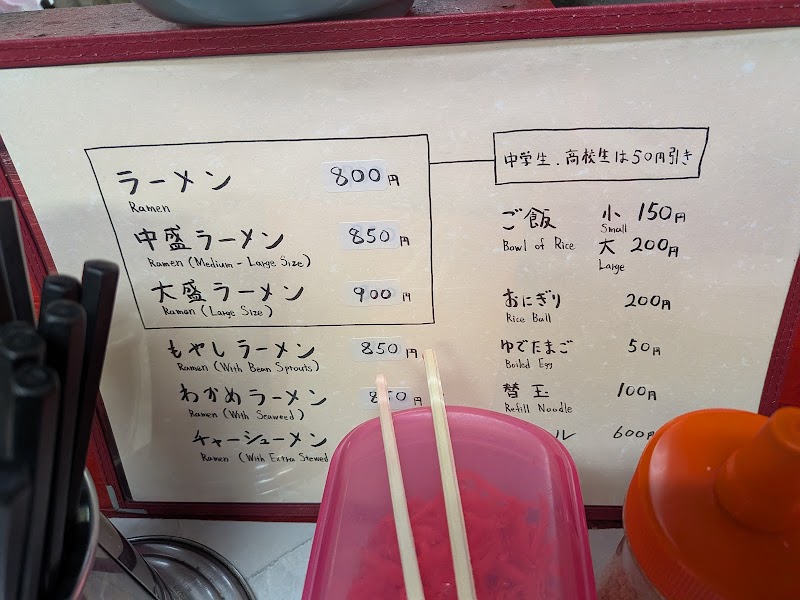 ラーメン 800円
Ramen
中盛ラーメン 850円
Ramen (Medium-Large Size)
大盛ラーメン 900円
Ramen (Large Size)
もやしラーメン 850円
Ramen (With Bean Sprouts)
わかめラーメン 850円
Ramen (With Seaweed)
チャーシューメン
Ramen (With Extra Stewed
中学生、高校生は50円引き
ご飯 小 150円
Bowl of Rice Small
大 200円
Large
おにぎり 200円
Rice Ball
ゆでたまご 50円
Boiled Egg
替玉 100円
Refill Noodle
ル 600円